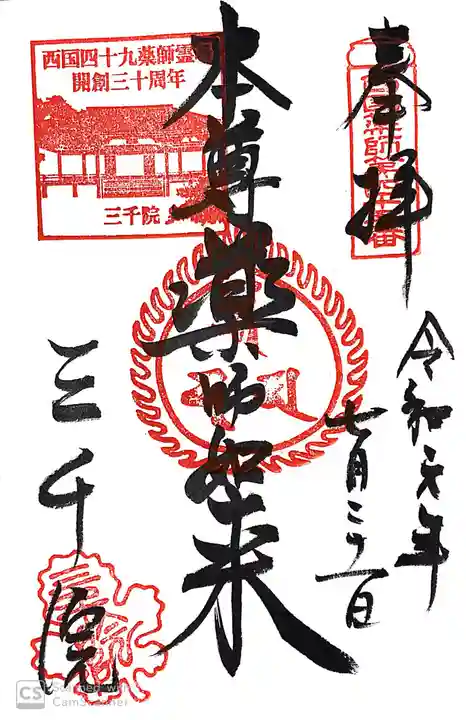 奉拝
令和元年
七月二十一日
本尊薬師如来
三千院
西国四十九薬師霊
開創三十周年
三千院
CS Scanned with
CamScanner